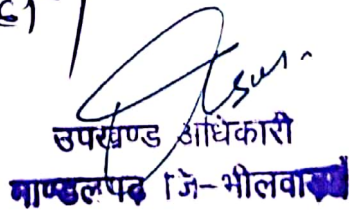 उपखण्ड अधिकारी
माण्डलगढ़ जि-भीलवाड़ा